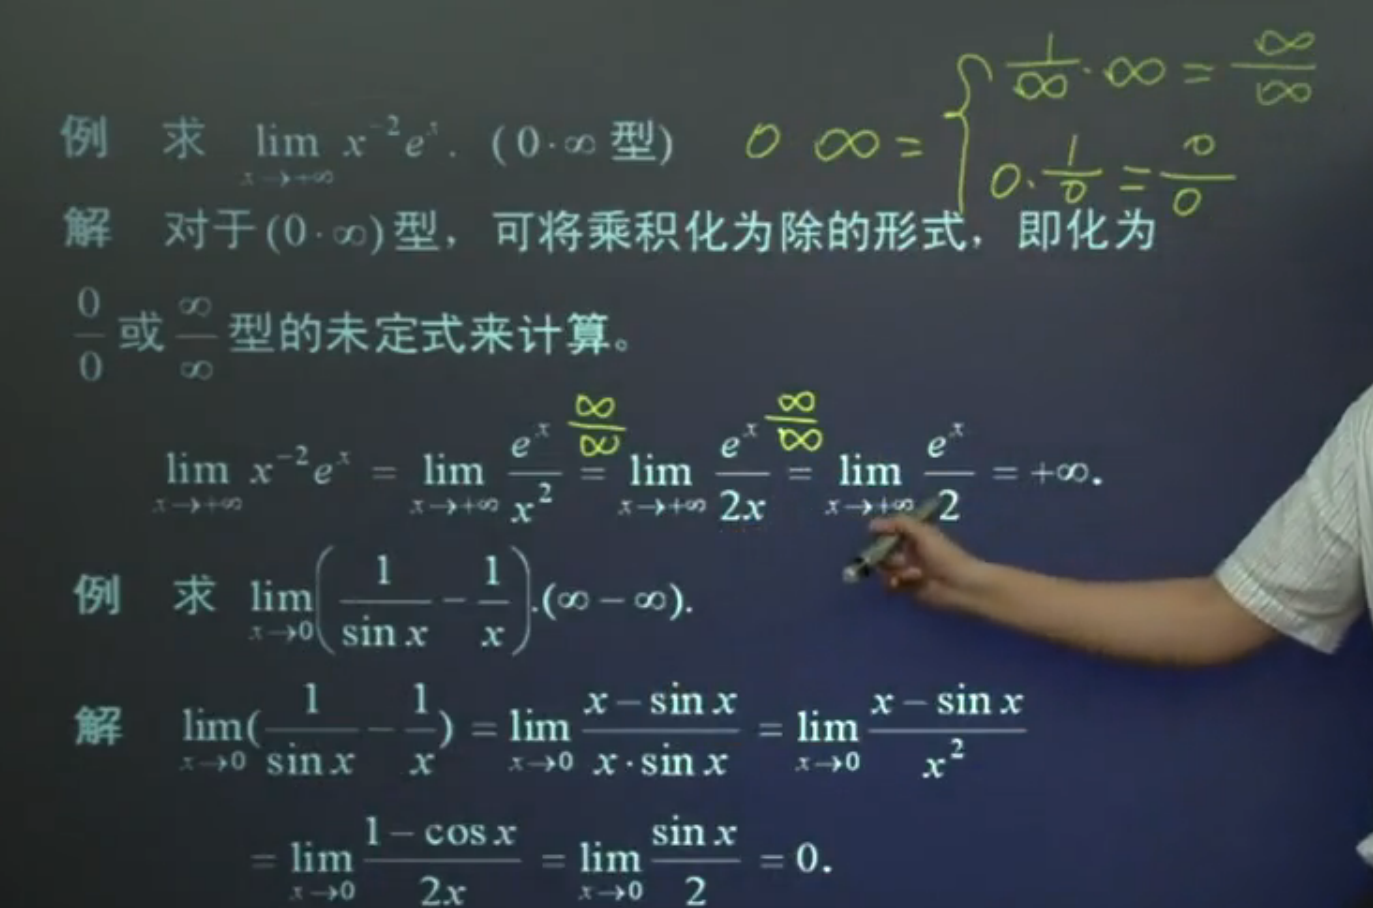 例 求 lim x→+∞ x⁻²eˣ. (0·∞ 型) 0 ∞ = { 1/∞·∞ = ∞/∞
0·1/0 = 0/0
解 对于(0·∞)型，可将乘积化为除的形式，即化为
0/0 或 ∞/∞ 型的未定式来计算。
∞/∞ ∞/∞
lim x→+∞ x⁻²eˣ = lim x→+∞ eˣ/x² = lim x→+∞ eˣ/2x = lim x→+∞ eˣ/2 = +∞.
例 求 lim x→0 (1/sin x − 1/x).(∞−∞).
解 lim x→0 (1/sin x − 1/x) = lim x→0 (x − sin x)/(x·sin x) = lim x→0 (x − sin x)/x²
= lim x→0 (1 − cos x)/2x = lim x→0 sin x/2 = 0.